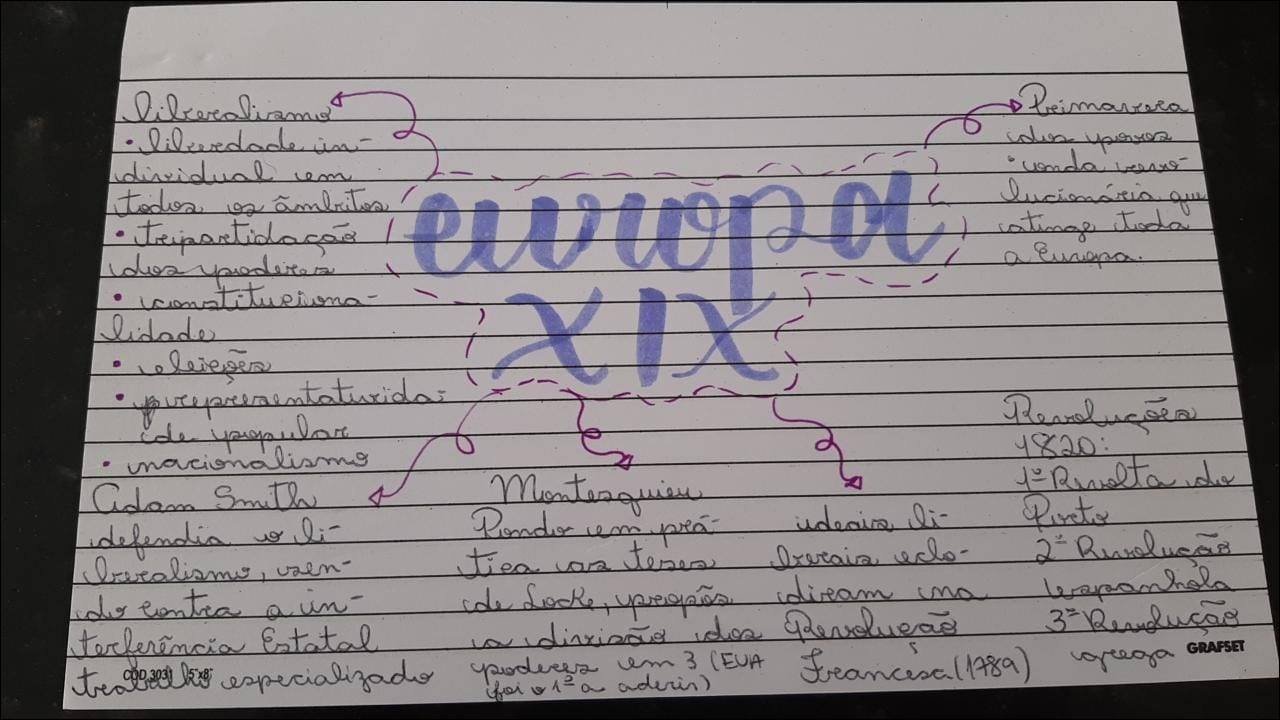 liberalismo
• liberdade in-
dividual em
todos os âmbitos
• tripartidação
dos poderes
• constituciona-
lidade
• eleições
• representativida-
de popular
• nacionalismo
europa
XIX
Primavera
dos povos
• onda revo-
lucionária que
atinge toda
a Europa.
Adam Smith
defendia o li-
beralismo, sen-
do contra a in-
terferência Estatal
trabalho especializado
Montesquieu
Pondo em prá-
tica as teses
de Locke, propôs
a divisão dos
poderes em 3 (EUA
foi o 1º a aderir)
ideais li-
berais eclo-
diram na
Revolução
Francesa (1789)
Revoluções
1820:
1º Revolta do
Porto
2ª Revolução
espanhola
3ª Revolução
grega
GRAFSET
CÓD 3031 5"x8"